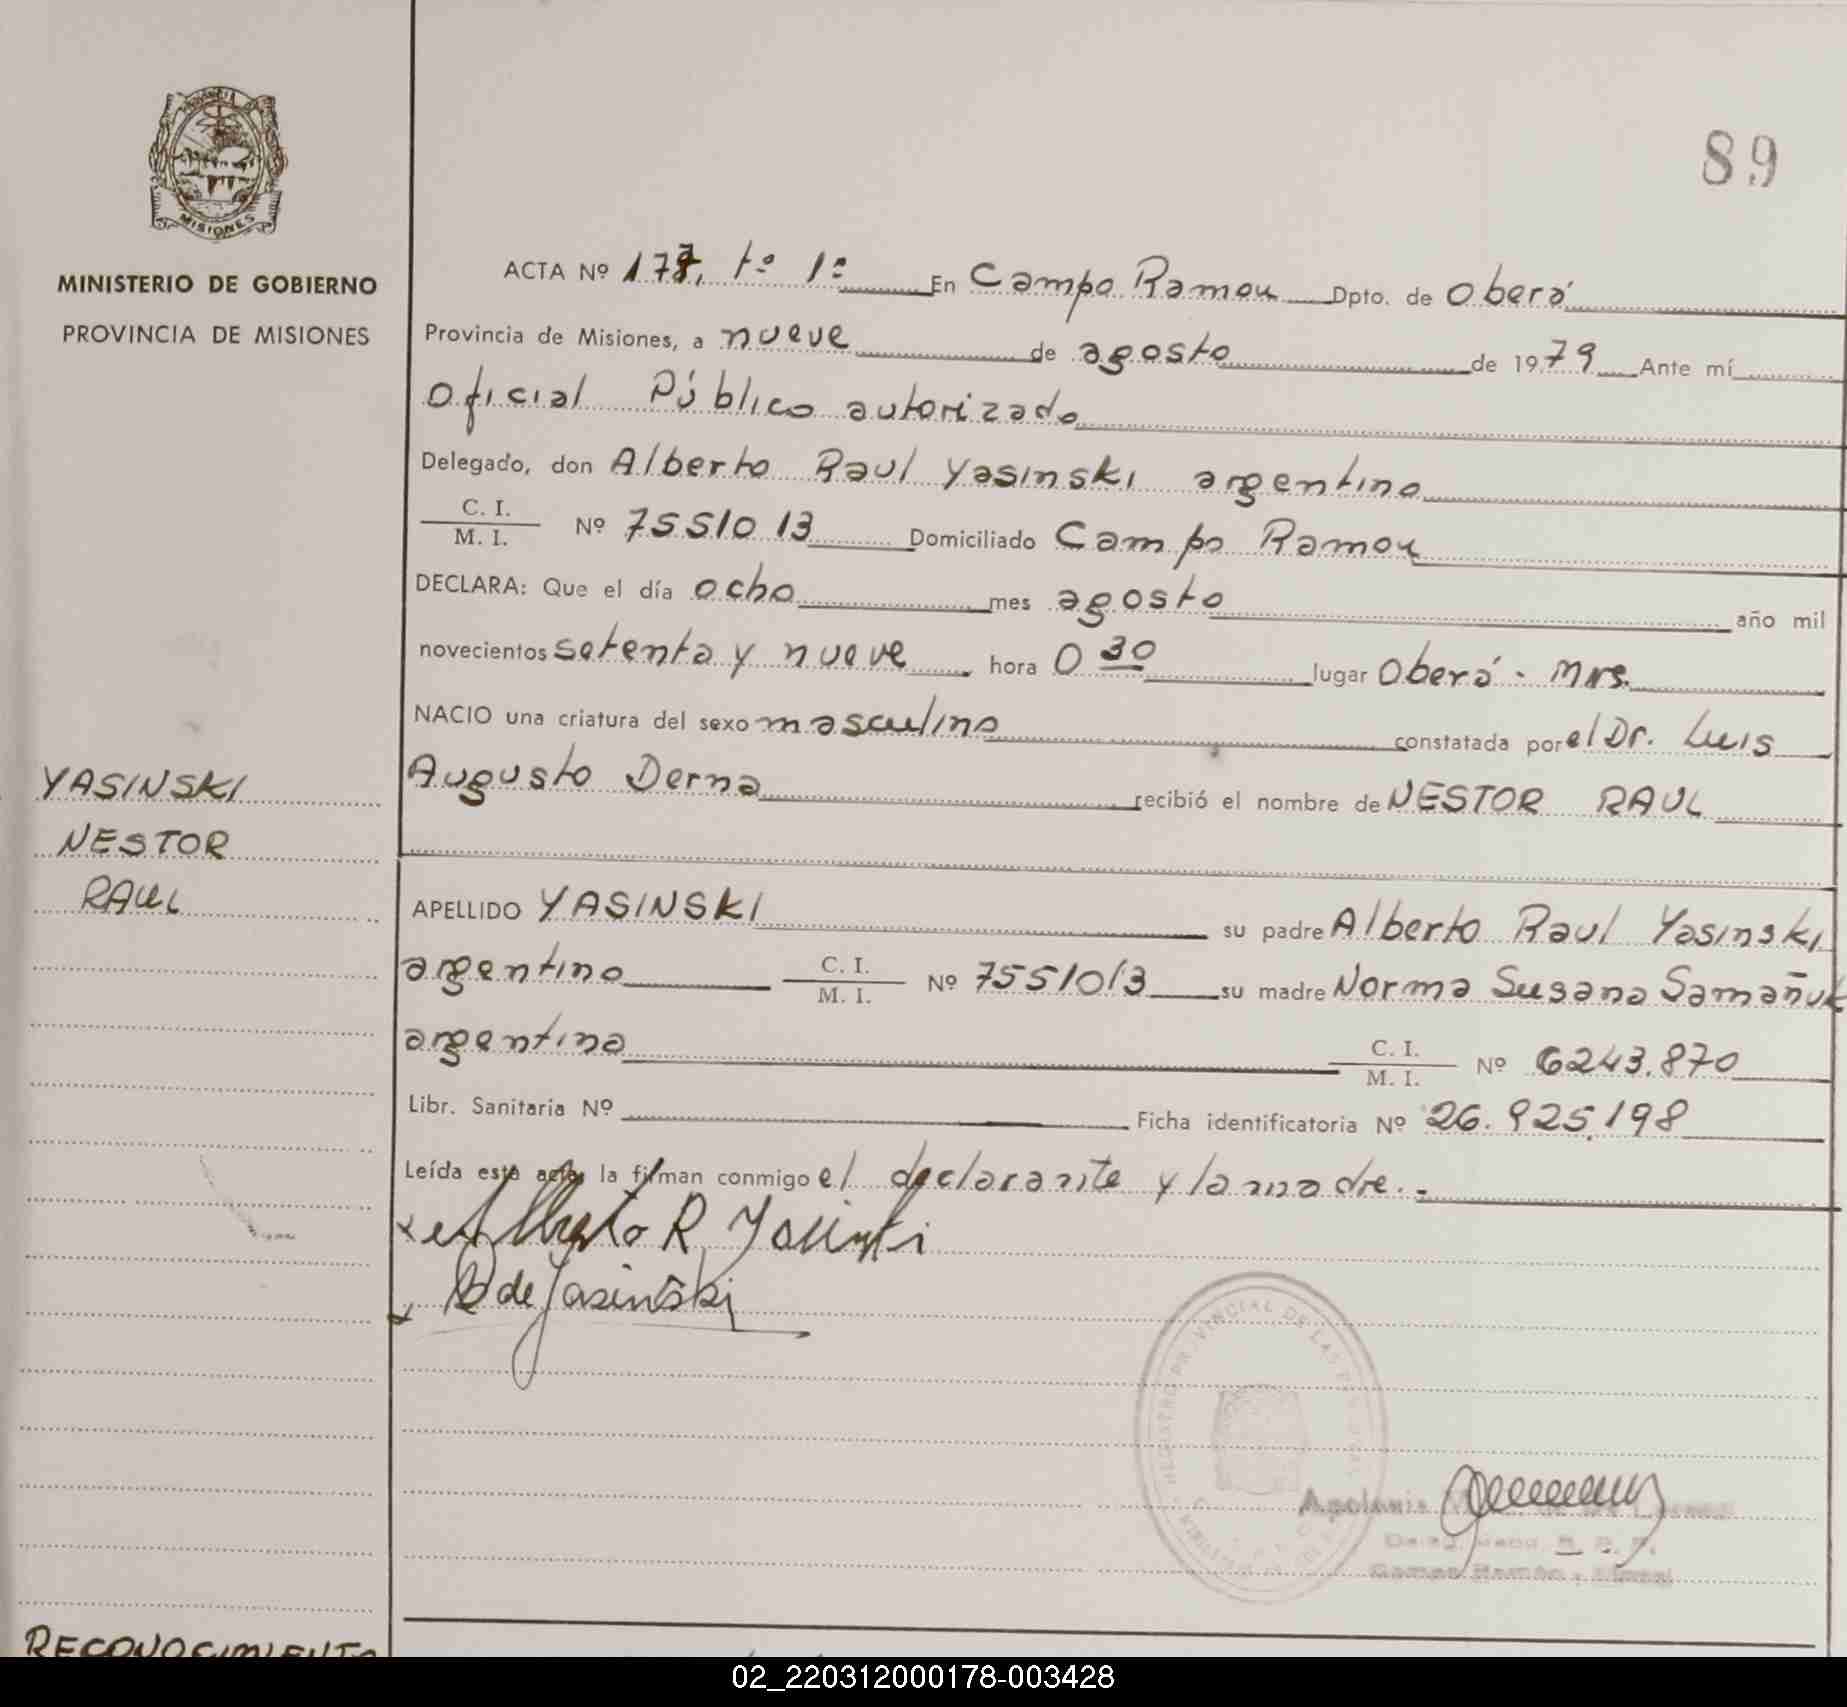 PROVINCIA DE
MISIONES
MINISTERIO DE GOBIERNO
PROVINCIA DE MISIONES
89
ACTA Nº 177, tº 1º En Campo Ramon Dpto. de Oberá
Provincia de Misiones, a nueve de agosto de 1979 Ante mí
Oficial Público autorizado
Delegado, don Alberto Raul Yasinski argentino
C. I.
M. I. Nº 7551013 Domiciliado Campo Ramon
DECLARA: Que el día ocho mes agosto año mil
novecientos setenta y nueve hora 0 30 lugar Oberá - Mns.
NACIO una criatura del sexo masculino constatada por el Dr. Luis
Augusto Derna recibió el nombre de NESTOR RAUL
YASINSKI
NESTOR
RAUL
APELLIDO YASINSKI su padre Alberto Raul Yasinski
argentino C. I.
M. I. Nº 7551013 su madre Norma Susana Samañuk
argentina C. I.
M. I. Nº 6243.870
Libr. Sanitaria Nº Ficha identificatoria Nº 26.925.198
Leída esta acta, la firman conmigo el declarante y la madre.-
Alberto R. Yasinski
de Yasinski
REGISTRO PROVINCIAL DE LAS
Campo Ramón - Misiones
RECONOCIMIENTO
02_220312000178-003428